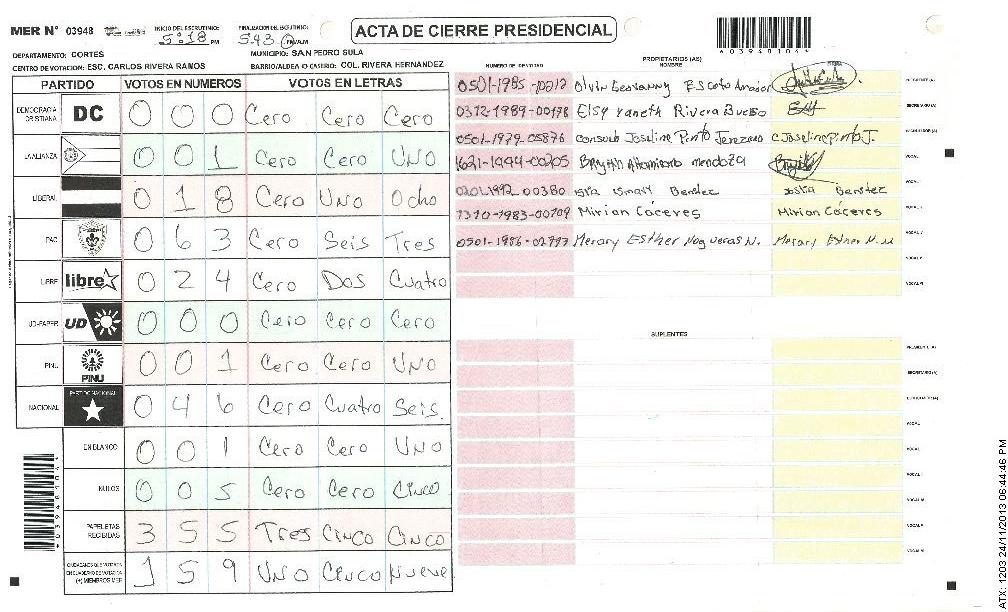 MER N° 03948
INICIO DEL ESCRUTINIO: 5:18 PM
FINALIZACION DEL ESCRUTINIO: 5:43 PM
ACTA DE CIERRE PRESIDENCIAL
DEPARTAMENTO: CORTES
MUNICIPIO: SAN PEDRO SULA
CENTRO DE VOTACION: ESC. CARLOS RIVERA RAMOS
BARRIO/ALDEA O CASERIO: COL. RIVERA HERNANDEZ
PARTIDO VOTOS EN NUMEROS VOTOS EN LETRAS
DEMOCRACIA CRISTIANA DC 0 0 0 Cero Cero Cero
LA ALIANZA 0 0 1 Cero Cero UNO
LIBERAL 0 1 8 Cero UNO Ocho
PAC 0 6 3 Cero Seis Tres
LIBRE libre 0 2 4 Cero Dos Cuatro
UD-FAPER UD 0 0 0 Cero Cero Cero
PINU PINU 0 0 1 Cero Cero UNO
NACIONAL PARTIDO NACIONAL 0 4 6 Cero Cuatro Seis
EN BLANCO 0 0 1 Cero Cero UNO
NULOS 0 0 5 Cero Cero Cinco
PAPELETAS RECIBIDAS 3 5 5 Tres Cinco Cinco
CIUDADANOS QUE VOTARON EN CUADERNO DE VOTACION (+) MIEMBROS MER 1 5 9 UNO Cinco Nueve
NUMERO DE IDENTIDAD
PROPIETARIOS (AS)
NOMBRE
0501-1985-10212 Olvin Geovanny Escoto Amador
0312-1989-00178 Elsy Yaneth Rivera Bueso
0501-1979-05876 Consuelo Joseline Pinto C Joseline Pinto J.
1621-1994-00205 Bryan Altamirano mendoza
0201-1992-00380 Benitez
1310-1983-00709 Mirian Cáceres Mirian Cáceres
0501-1986-02777 Merary Esther Nogueras N. Merary Esther N.
SUPLENTES
ATX: 1203 24/11/2013 06:44:46 PM